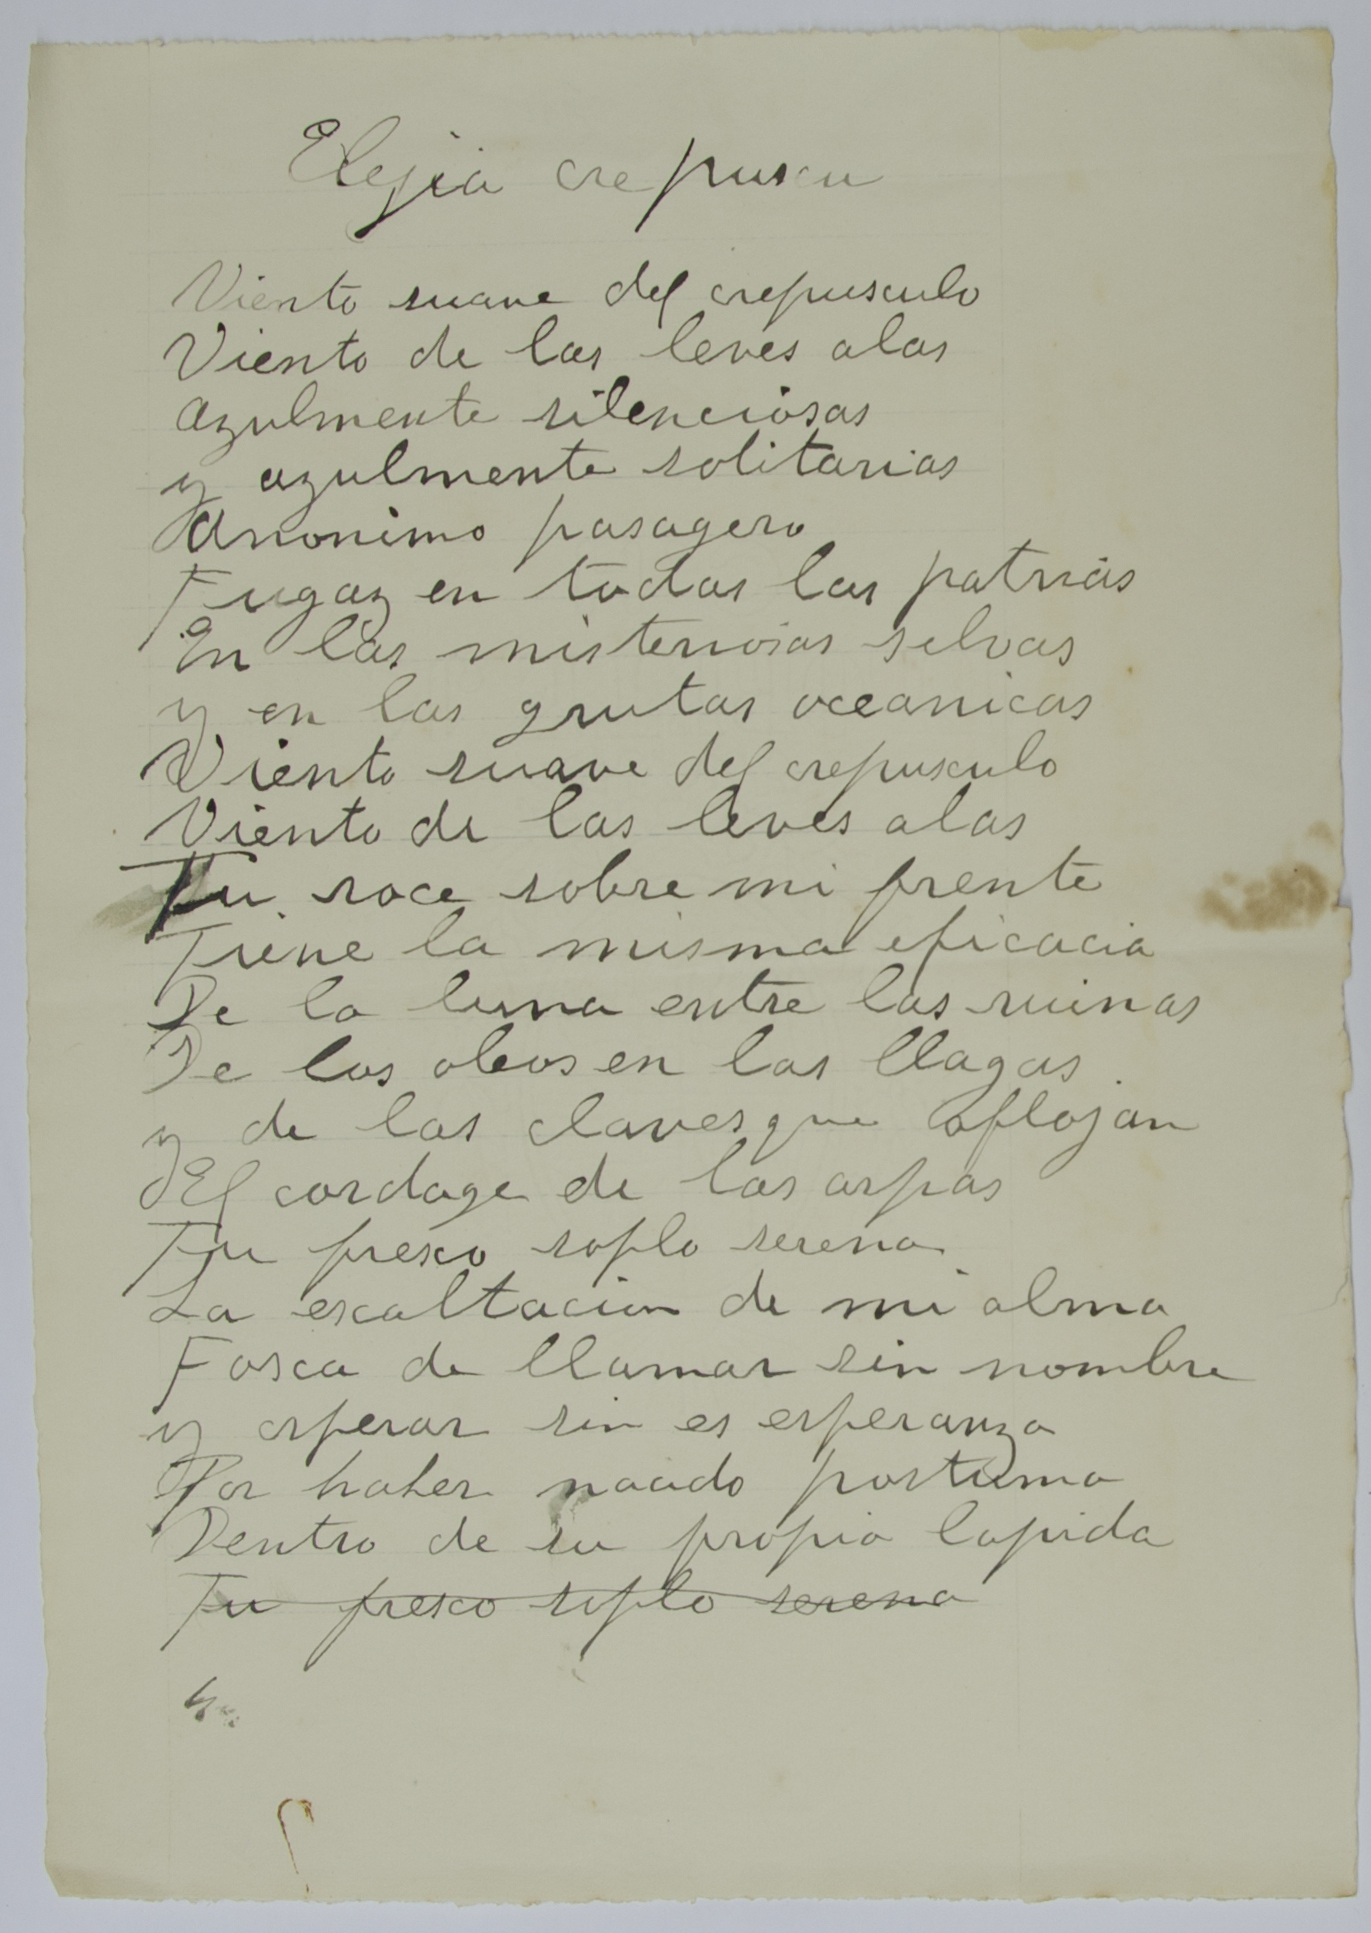 Elejia crepuscu
Viento suave del crepusculo
Viento de las leves alas
azulmente silenciosas
y azulmente solitarias
Anonimo pasagero
Fugaz en todas las patrias
En las misteriosas selvas
y en las grutas oceanicas
Viento suave del crepusculo
Viento de las leves alas
Tu roce sobre mi frente
Tiene la misma eficacia
De la luna entre las ruinas
De los oleos en las llagas
y de las claves que aflojan
El cordage de las arpas
Tu fresco soplo serena
La escaltacion de mi alma
Fosca de llamar sin nombre
y esperar sin es esperanza
Por haber nacido postuma
Dentro de su propia lapida
Tu fresco soplo serena